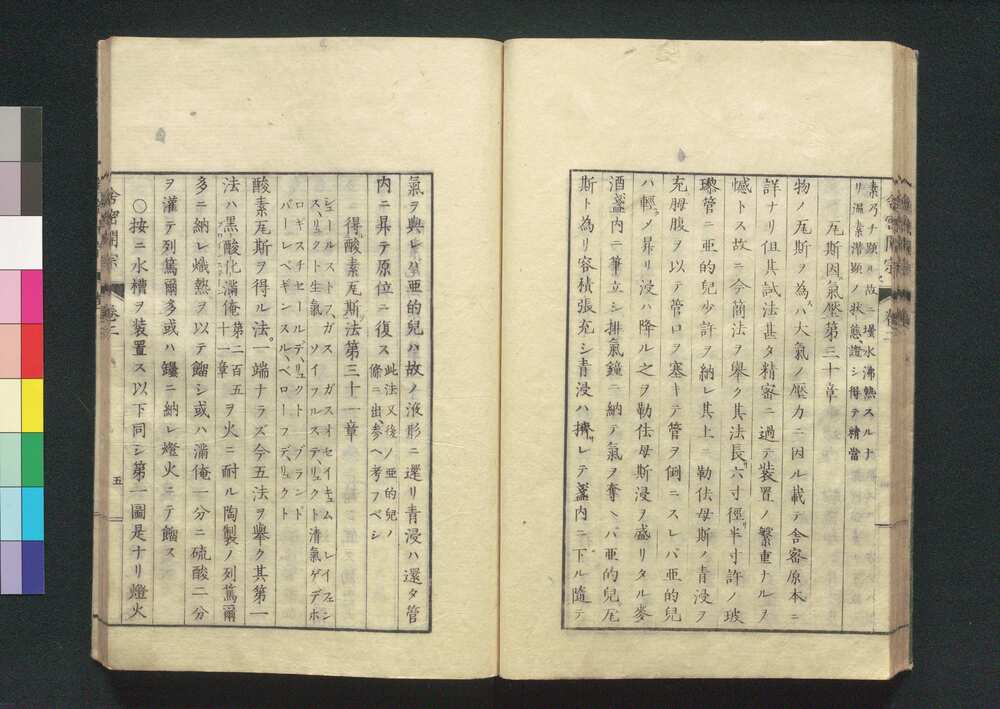 素乃チ顕ル故ニ場水沸熱スルナ
リ温素潜顕ノ状態、證シ得テ精當
瓦斯因氣壓第三十章
物ノ瓦斯ヲ為ハ大氣ノ壓力ニ因ル載テ舎密原本ニ
詳ナリ但其試法甚タ精審ニ過テ装置ノ繁重ナルヲ
憾トス故ニ今簡法ヲ擧ク其法長六寸徑半寸許ノ玻
瓈管ニ亜的兒少許ヲ納レ其上ニ勒佉母斯ノ青浸ヲ
充拇腹ヲ以テ管口ヲ塞キテ管ヲ倒ニスレバ亜的兒
ハ輕メ昇リ浸ハ降ル之ヲ勒佉母斯浸ヲ盛リタル麥
酒盞内ニ筆立シ排氣鐘ニ納テ氣ヲ奪ヘバ亜的兒瓦
斯ト為リ容積張充シ青浸ハ擠レテ盞内ニ下ル隨テ
氣ヲ與レハ亜的兒ハ故ノ液形ニ還リ青浸ハ還タ管
内ニ昇テ原位ニ復ス 此法又後ノ亜的兒ノ
條ニ出参ヘ考フベシ
得酸素瓦斯法第三十一章
シュールストフガス ガスオキセイギュム レイフェン
スリュクト生氣 ソイフルステリュクト清氣ゲデホ
ロギスチセールデリュクト ブランド
バーレベギンスル、ベローフデリュクト
酸素瓦斯ヲ得ル法一端ナラズ今五法ヲ擧ク其第一
法ハ黒酸化満俺 第二百五
十一章 ヲ火ニ耐ル陶製ノ列篤爾
多ニ納レ熾熱ヲ以テ餾シ或ハ満俺一分ニ硫酸二分
ヲ灌テ列篤爾多或ハ罎ニ納レ燈火ニテ餾ス
○按ニ水槽ヲ装置ス以下同シ第一圖是ナリ燈火
舎密開宗 巻二
五